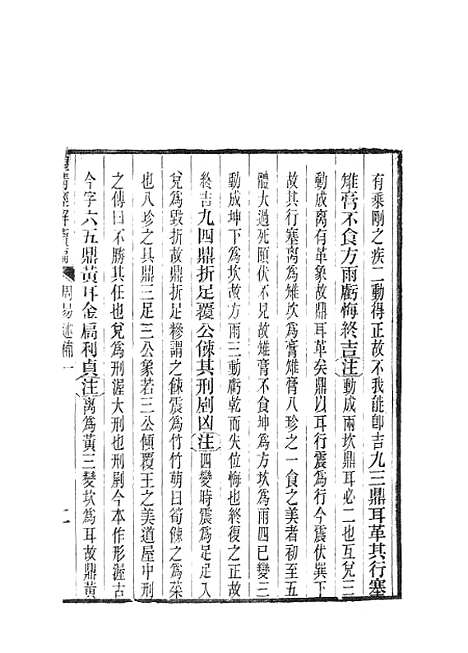 有乘剛之疾二動得正故不我能卽吉九三鼎耳革其行塞
雉膏不食方雨虧悔終吉注動成兩坎鼎耳必二也互兌三
動成离有革象故鼎耳革矣鼎以耳行震爲行今震伏巽下
故其行塞离爲雉坎爲膏雉膏八珍之一食之美者初至五
體大過死頤伏不見故雉膏不食坤爲方坎爲雨四已變三
動成坤下爲坎故方雨三動虧乾而失位悔也終復之正故
終吉九四鼎折足覆公餗其刑剭凶注四變時震爲足足入
兌爲毀折故鼎折足糝謂之餗震爲竹竹萌曰筍餗之爲菜
也八珍之具鼎三足三公象若三公傾覆王之美道屋中刑
之傳曰不勝其任也兌爲刑渥大刑也刑剭今本作形渥古
今字六五鼎黃耳金扃利貞注离爲黃三變坎爲耳故鼎黃
皇清經解續編
周易述補一
二